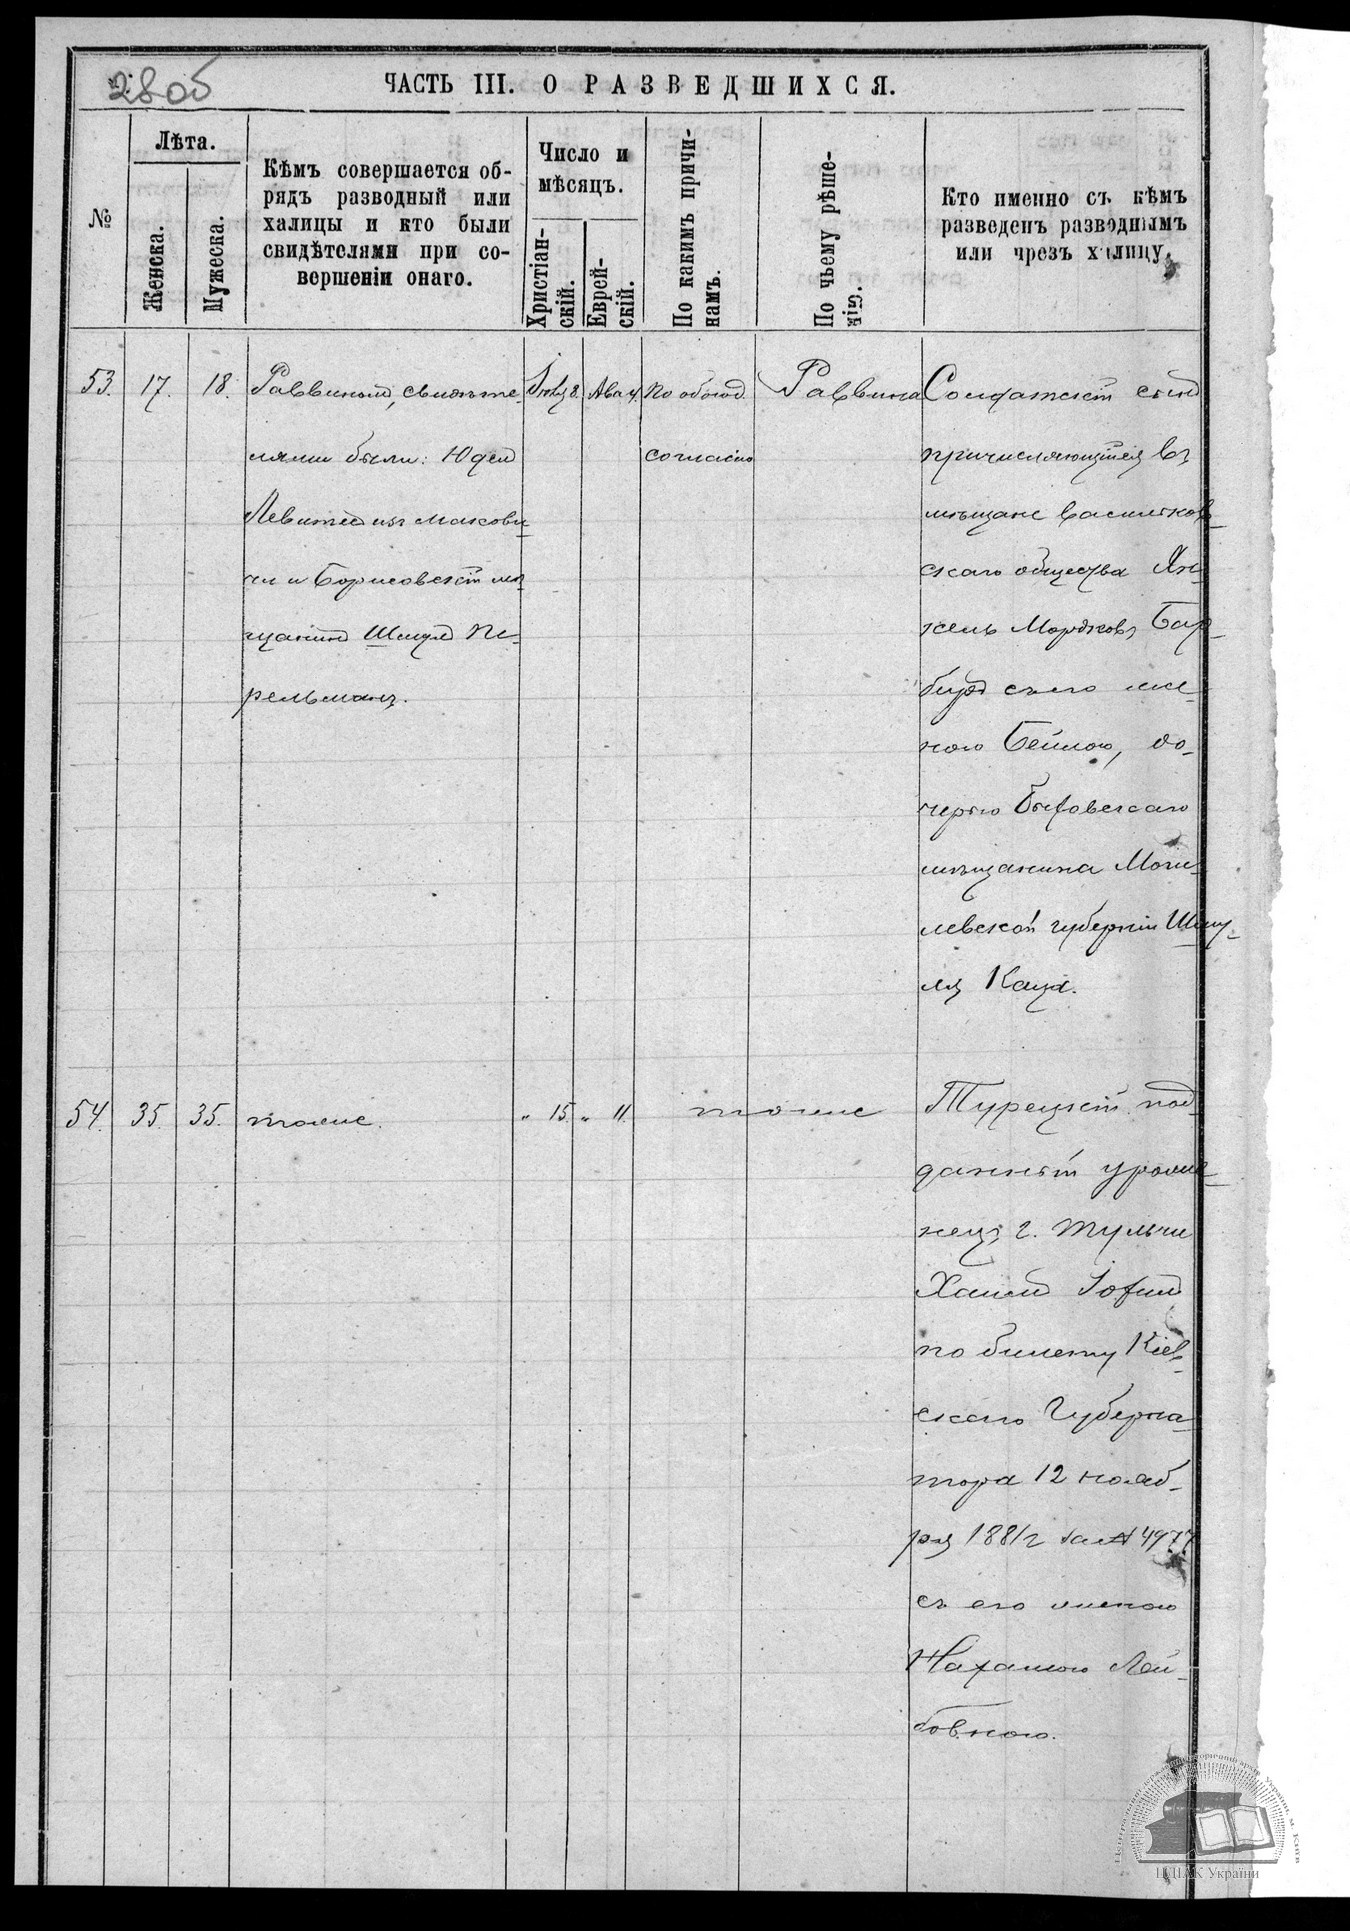 28об
ЧАСТЬ III. О РАЗВЕДШИХСЯ.
№
Лѣта.
Женска.
Мужеска.
Кѣмъ совершается об-
рядъ разводный или
халицы и кто были
свидѣтелями при со-
вершеніи онаго.
Число и
мѣсяцъ.
Христіан-
скій.
Еврей-
скій.
По какимъ причи-
намъ.
По чьему рѣше-
нію.
Кто именно съ кѣмъ
разведенъ разводнымъ
или чрезъ халицу.
53. 17. 18.
Раввиномъ, свидѣте-
лями были: Юдель
Левитъ изъ
и Борисовскій мѣ-
щанинъ Шмуль Пе-
рельманъ.
Іюль 8. Ава 4.
По обоюд.
согласію
Раввина
Солдатскій сынъ
причисляющійся въ
мѣщане Васильков-
скаго общества Ян-
кель Мордковъ Бар-
биръ съ его же-
ною Бейлою, до-
черью Быховскаго
мѣщанина Моги-
левской губерніи Шму-
ля Каца.
54. 35. 35. тоже.
" 15. " 11.
тоже
Турецкій под-
данный уроже-
нецъ г. Тульчи
Хаимъ
по билету Кіев-
скаго Губерна-
тора 12 нояб-
ря 1881 г за № 4977
съ его женою
Нахамою Лей-
бовною.
Центральний державний історичний архів України, м. Київ
ЦДІАК України